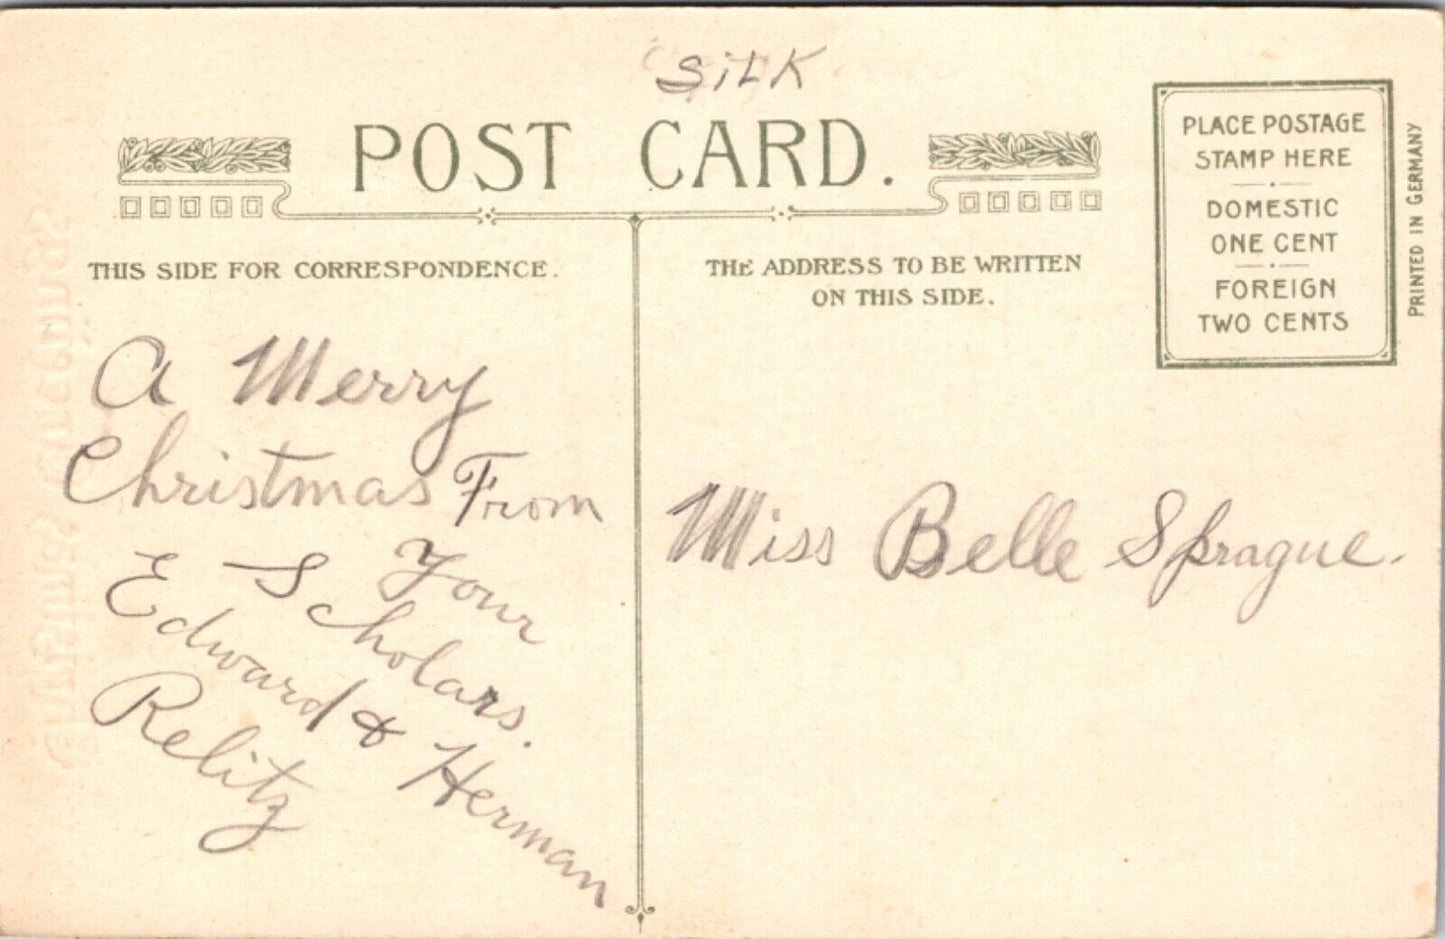 SiLK
POST CARD.
THIS SIDE FOR CORRESPONDENCE.
THE ADDRESS TO BE WRITTEN
ON THIS SIDE.
PLACE POSTAGE
STAMP HERE
DOMESTIC
ONE CENT
FOREIGN
TWO CENTS
PRINTED IN GERMANY
A Merry
Christmas From
Your
Scholars.
Edward & Herman
Relitz
Miss Belle Sprague.
Christmas Greetings